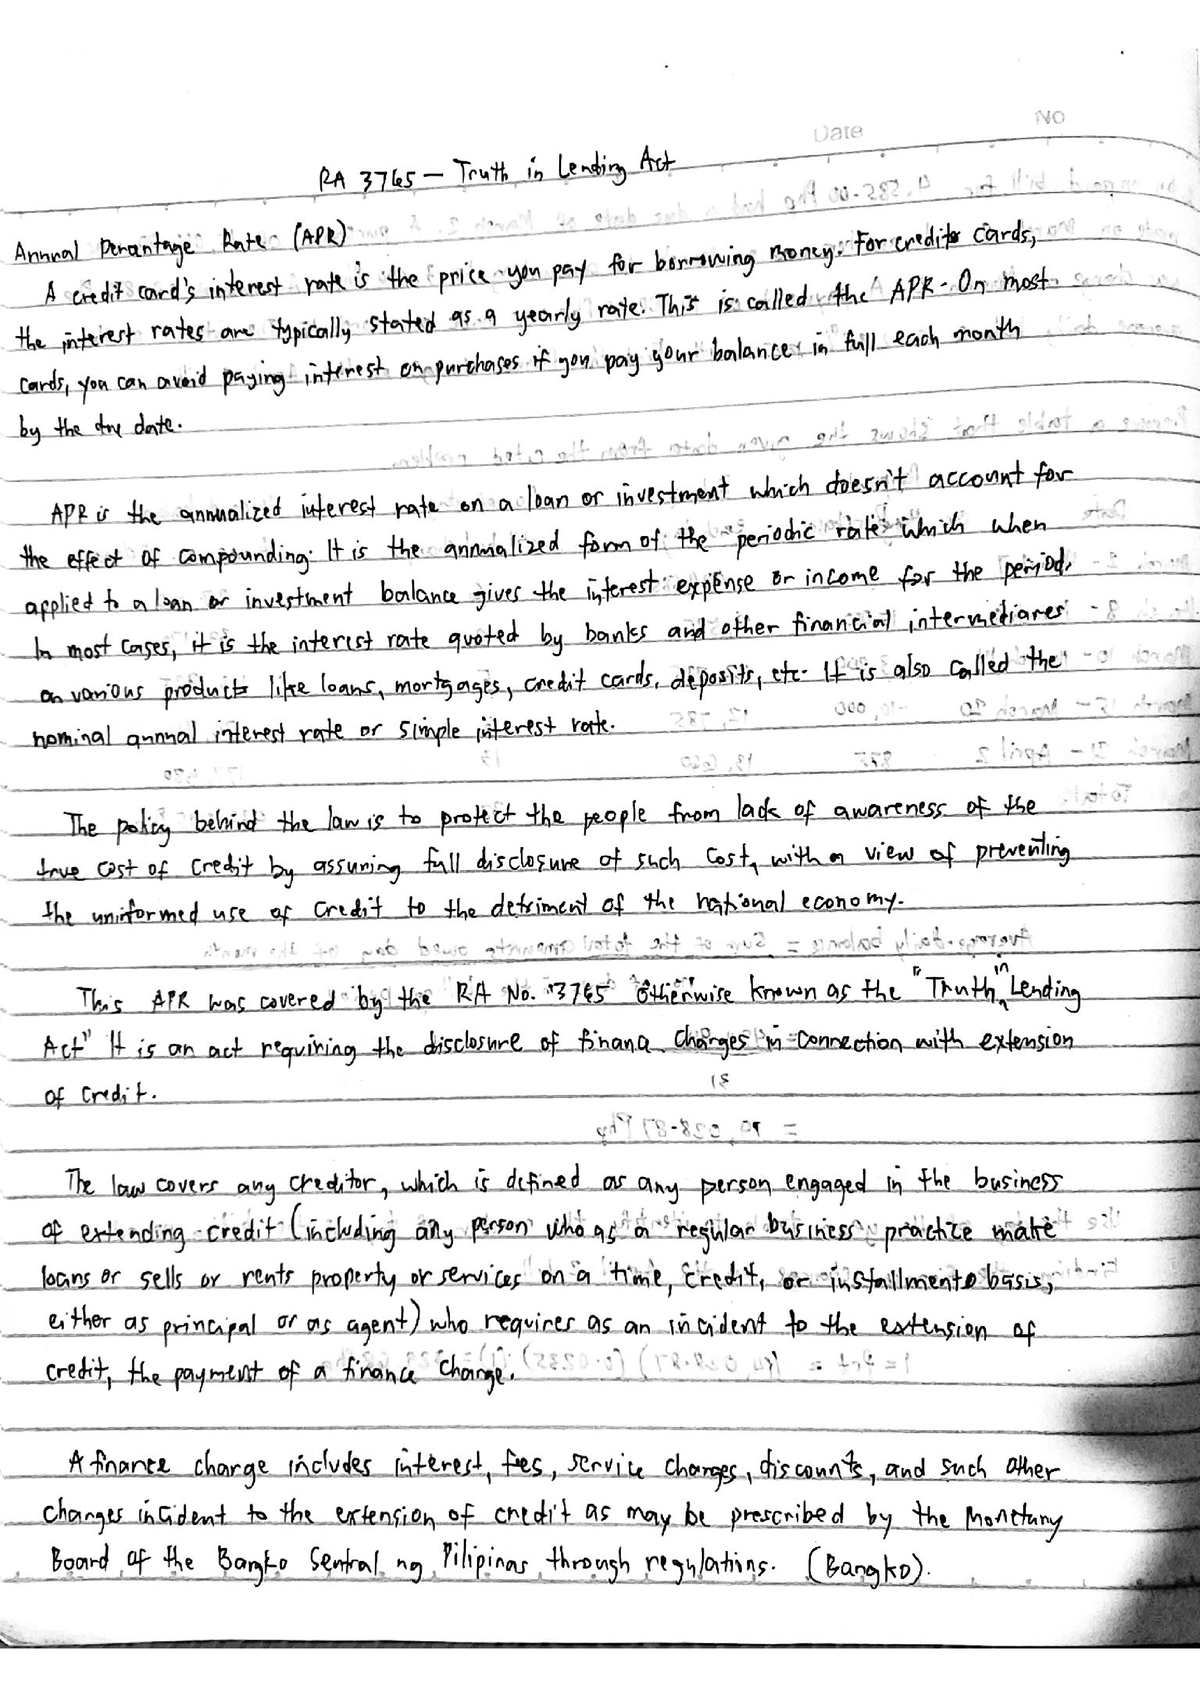 No
Date
RA 3765 – Truth in Lending Act
Annual Percantage Rate (APR)
A credit card's interest rate is the price you pay for borrowing money. For credits cards,
the interest rates are typically stated as a yearly rate. This is called the APR. On most
cards, you can avoid paying interest on purchases if you pay your balance in full each month
by the due date.
APR is the annualized interest rate on a loan or investment which doesn't account for
the effect of compounding. It is the annualized form of the periodic rate which when
applied to a loan or investment balance gives the interest expense or income for the period.
In most cases, it is the interest rate quoted by banks and other financial intermediares
on various products like loans, mortgages, credit cards, deposits, etc. It is also called the
nominal annual interest rate or simple interest rate.
The policy behind the law is to protect the people from lack of awareness of the
true cost of credit by assuring full disclosure of such cost, with a view of preventing
the uninformed use of credit to the detriment of the national economy.
This APR was covered by the RA No. 3765 otherwise known as the "Truth in Lending
Act" It is an act requiring the disclosure of finana charges in connection with extension
of credit.
The law covers any creditor, which is defined as any person engaged in the business
of extending credit (including any person who as a regular business practice make
loans or sells or rents property or services on a time, credit, or installments basis,
either as principal or as agent) who requires as an incident to the extension of
credit, the payment of a finance charge.
A finance charge includes interest, fees, service charges, discounts, and such other
charges incident to the extension of credit as may be prescribed by the Monetary
Board of the Bangko Sentral ng Pilipinas through regulations. (Bangko).